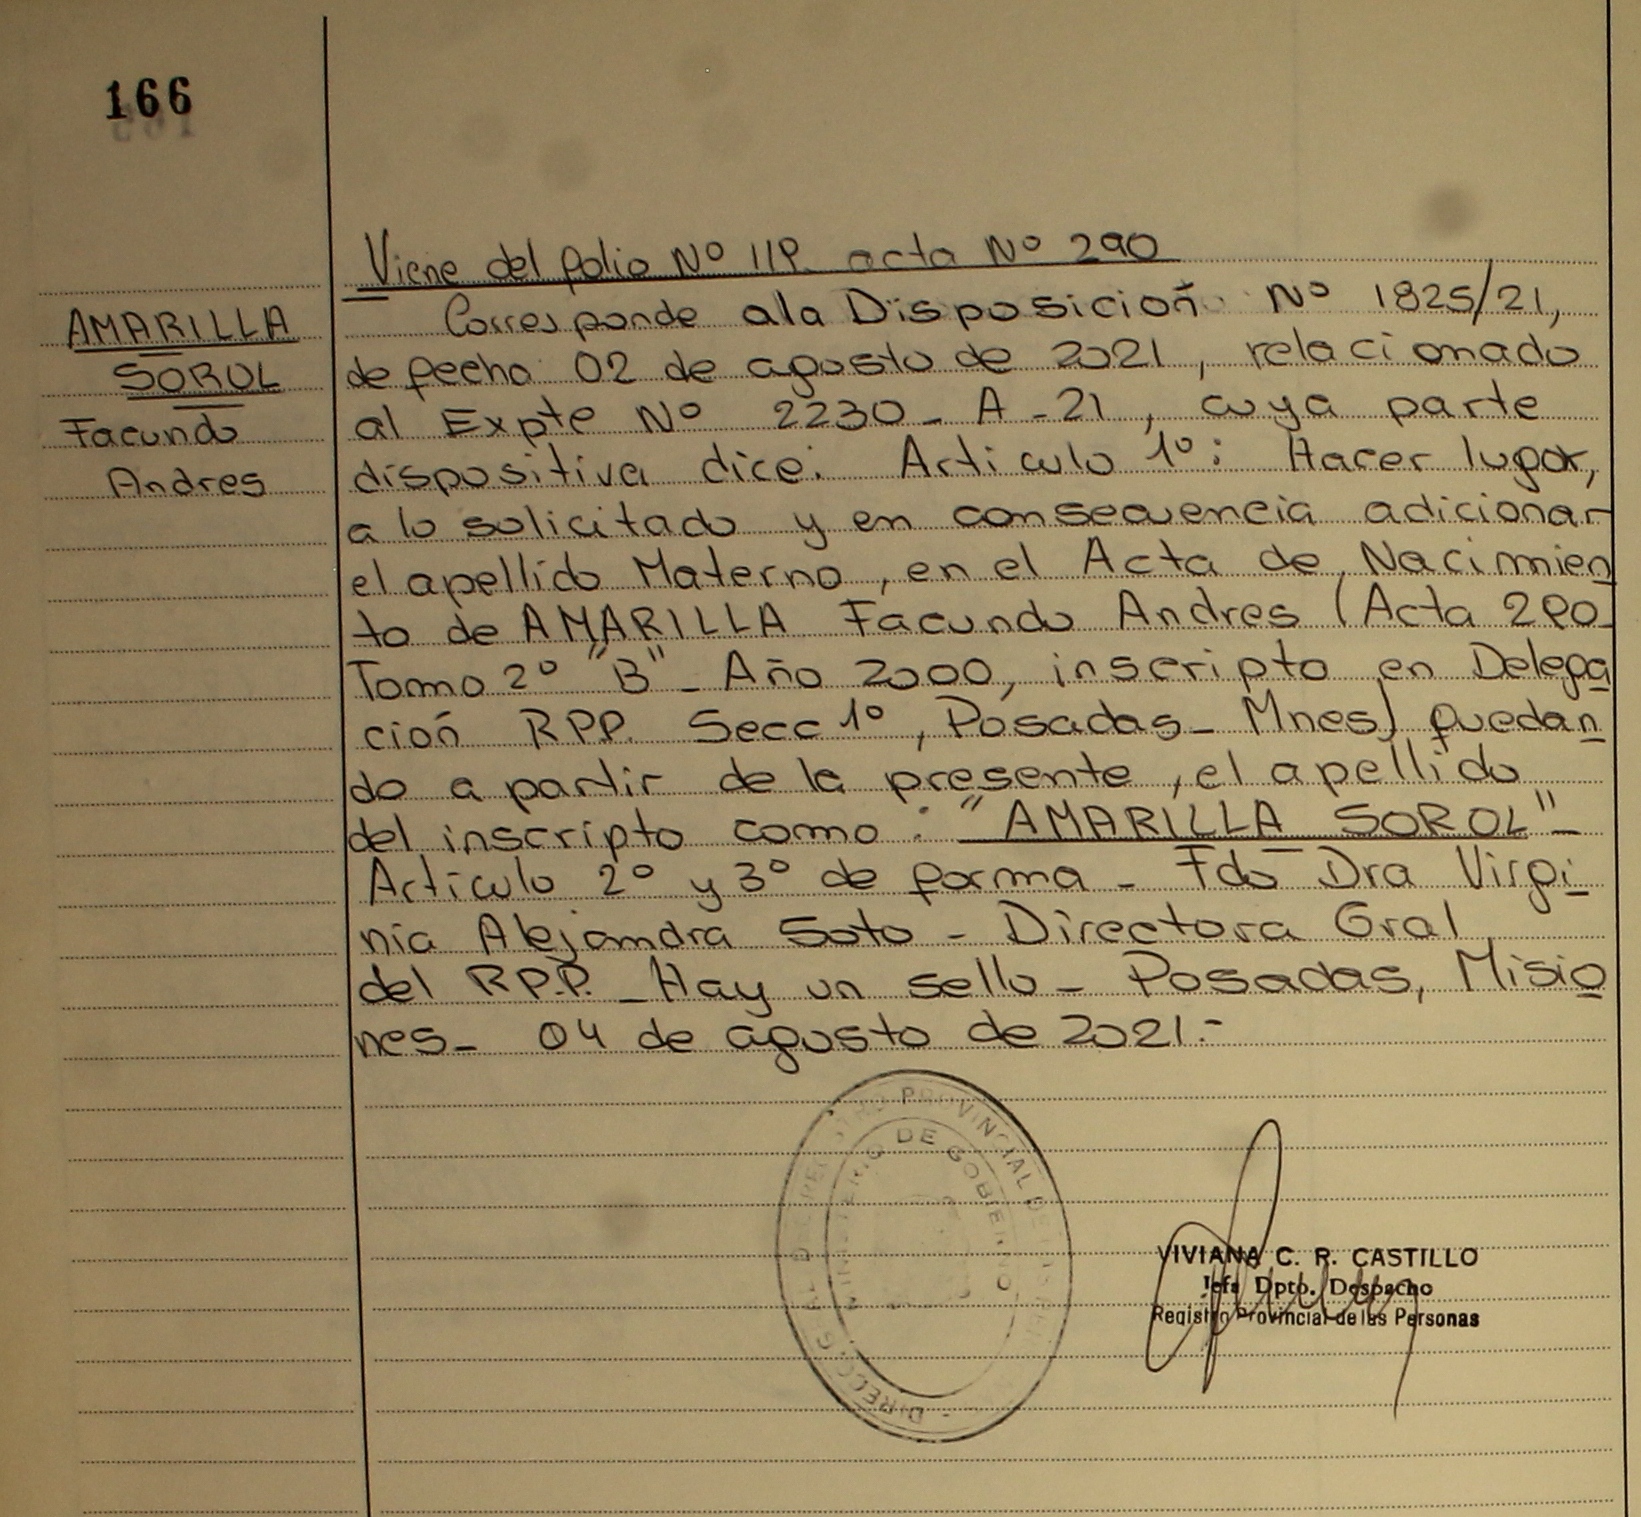 166
Viene del folio Nº 119 acta Nº 290
AMARILLA
SOROL
Facundo
Andres
Corresponde a la Disposición Nº 1825/21,
de fecha 02 de agosto de 2021, relacionado
al Expte Nº 2230 - A - 21, cuya parte
dispositiva dice: Artículo 1º: Hacer lugar,
a lo solicitado y en consecuencia adicionar
el apellido Materno, en el Acta de Nacimien
to de AMARILLA Facundo Andres (Acta 290
Tomo 2º "B" - Año 2000, inscripto en Delega
ción RPP. Secc 1º, Posadas - Mnes) quedan
do a partir de la presente, el apellido
del inscripto como: "AMARILLA SOROL" -
Artículo 2º y 3º de forma - Fdo Dra Virgi
nia Alejandra Soto - Directora Gral
del RP.P. - Hay un sello - Posadas, Misio
nes - 04 de agosto de 2021.-
PROVINCIAL DE
DE GOBIERNO
VIVIANA C. R. CASTILLO
Jefa Dpto. Despacho
Registro Provincial de las Personas